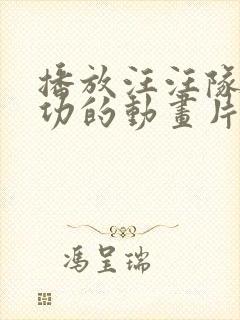 播放汪汪隊
功的動畫片
馮呈瑞